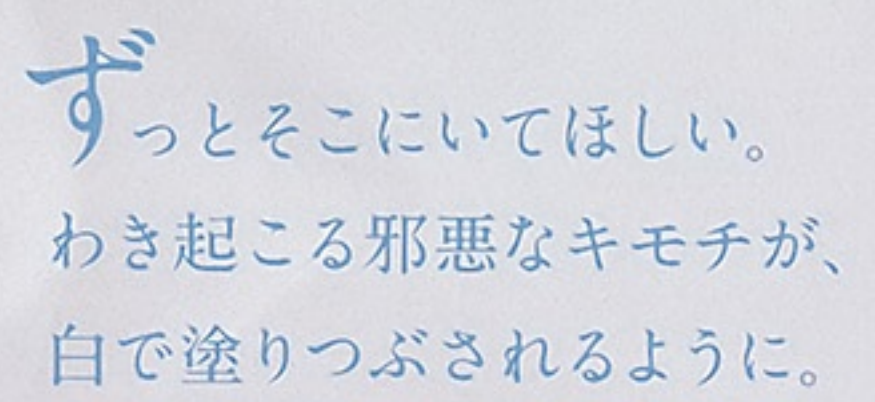 ずっとそこにいてほしい。
わき起こる邪悪なキモチが、
白で塗りつぶされるように。